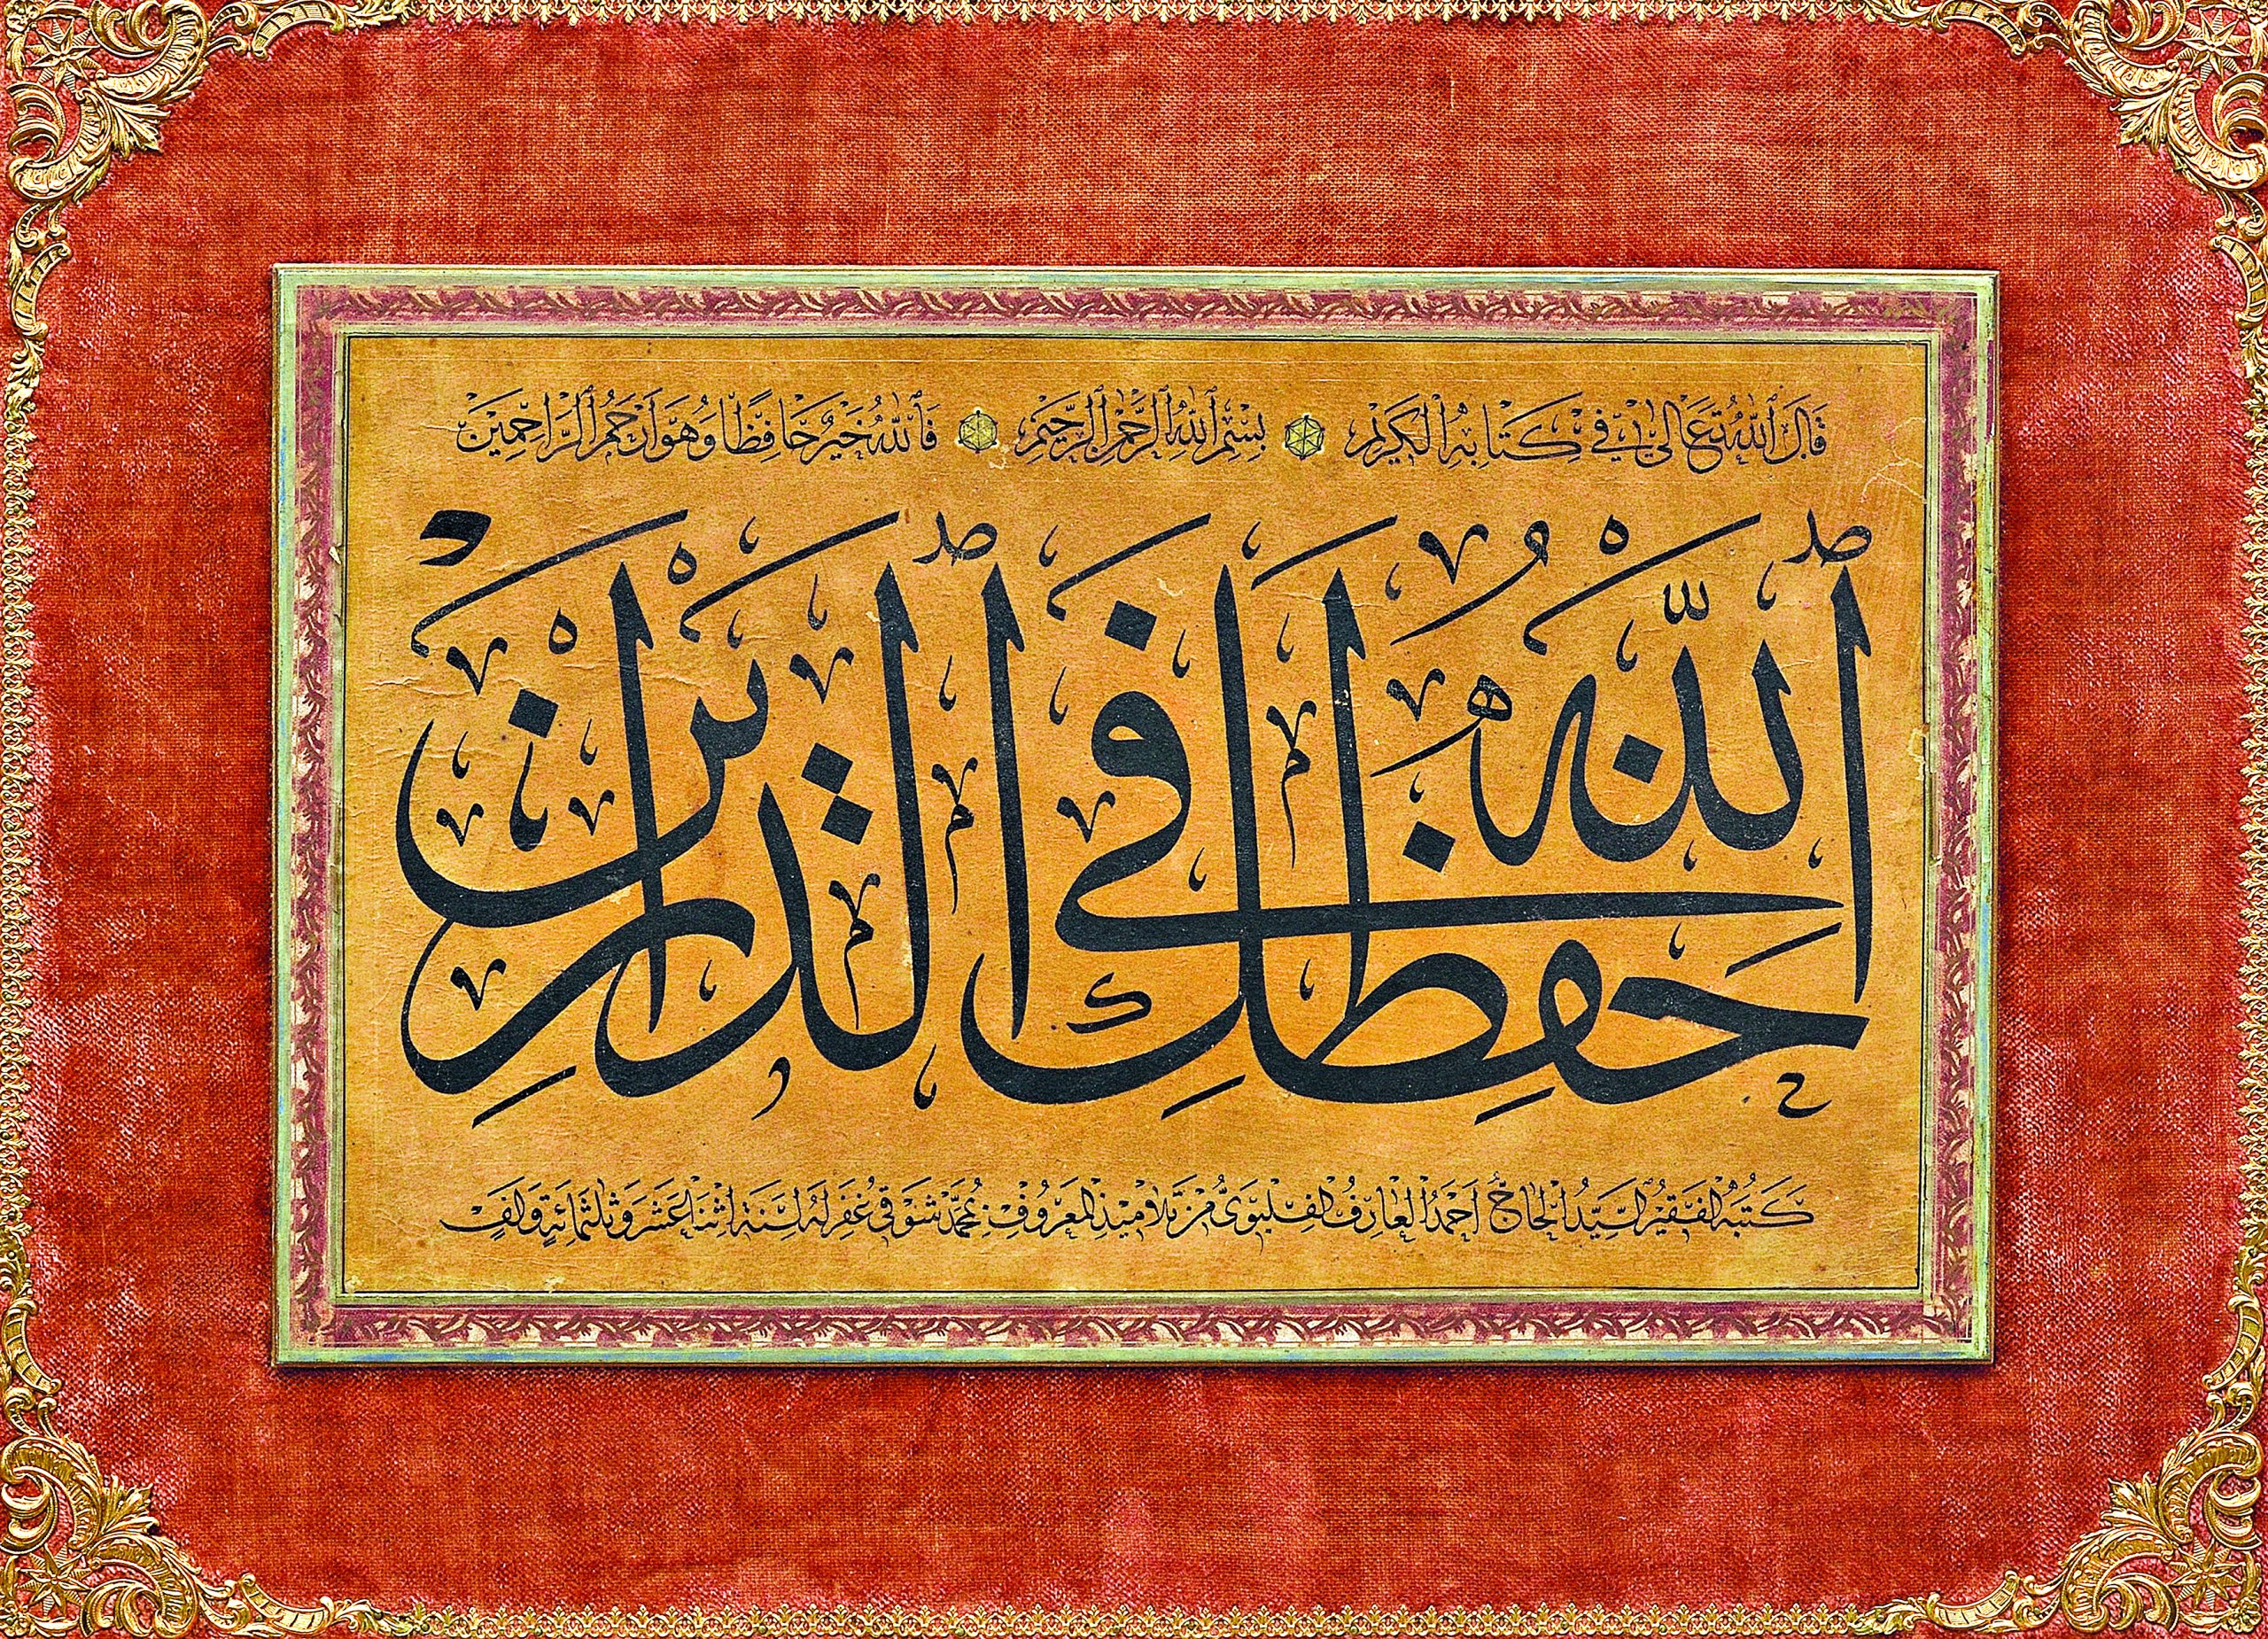 قَالَ اللّٰهُ تَعَالٰى فِي كِتَابِهِ الْكَرِيْمِ بِسْمِ اللّٰهِ الرَّحْمٰنِ الرَّحِيْمِ فَاللّٰهُ خَيْرٌ حَافِظًا وَهُوَ اَرْحَمُ الرَّاحِمِيْنَ
حَفِظَكَ اللّٰهُ فِى الدَّارَيْنِ
كَتَبَهُ الْفَقِيْرُ السَّيِّدُ الْحَاجُّ اَحْمَدُ الْعَارِفُ الْفِلِبَوِىُّ مِنْ تَلَامِيْذِ الْمَعْرُوْفِ بِمُحَمَّدْ شَوْقِى غُفِرَ لَهُ لِسَنَةِ اِثْنَا عَشَرَ وَثَلٰثِمِائَةٍ وَاَلْفٍ